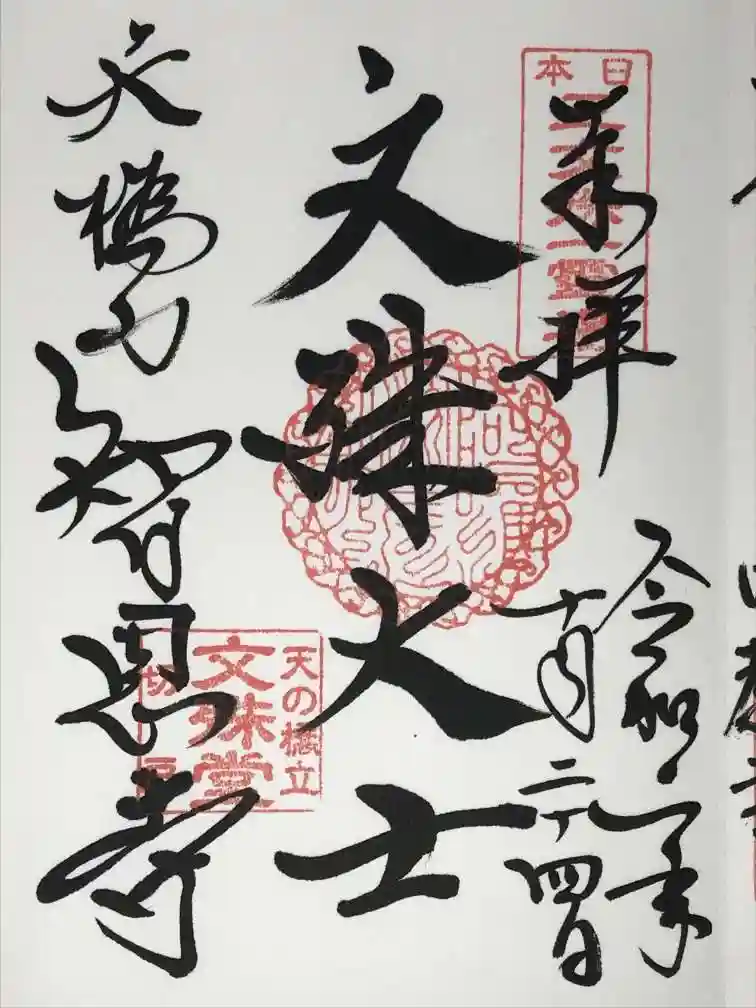 日本
三文殊第一霊場
奉拝
令和二年
十月二十四日
文殊大士
天橋立
智恩寺
天の橋立
文殊堂
切戸